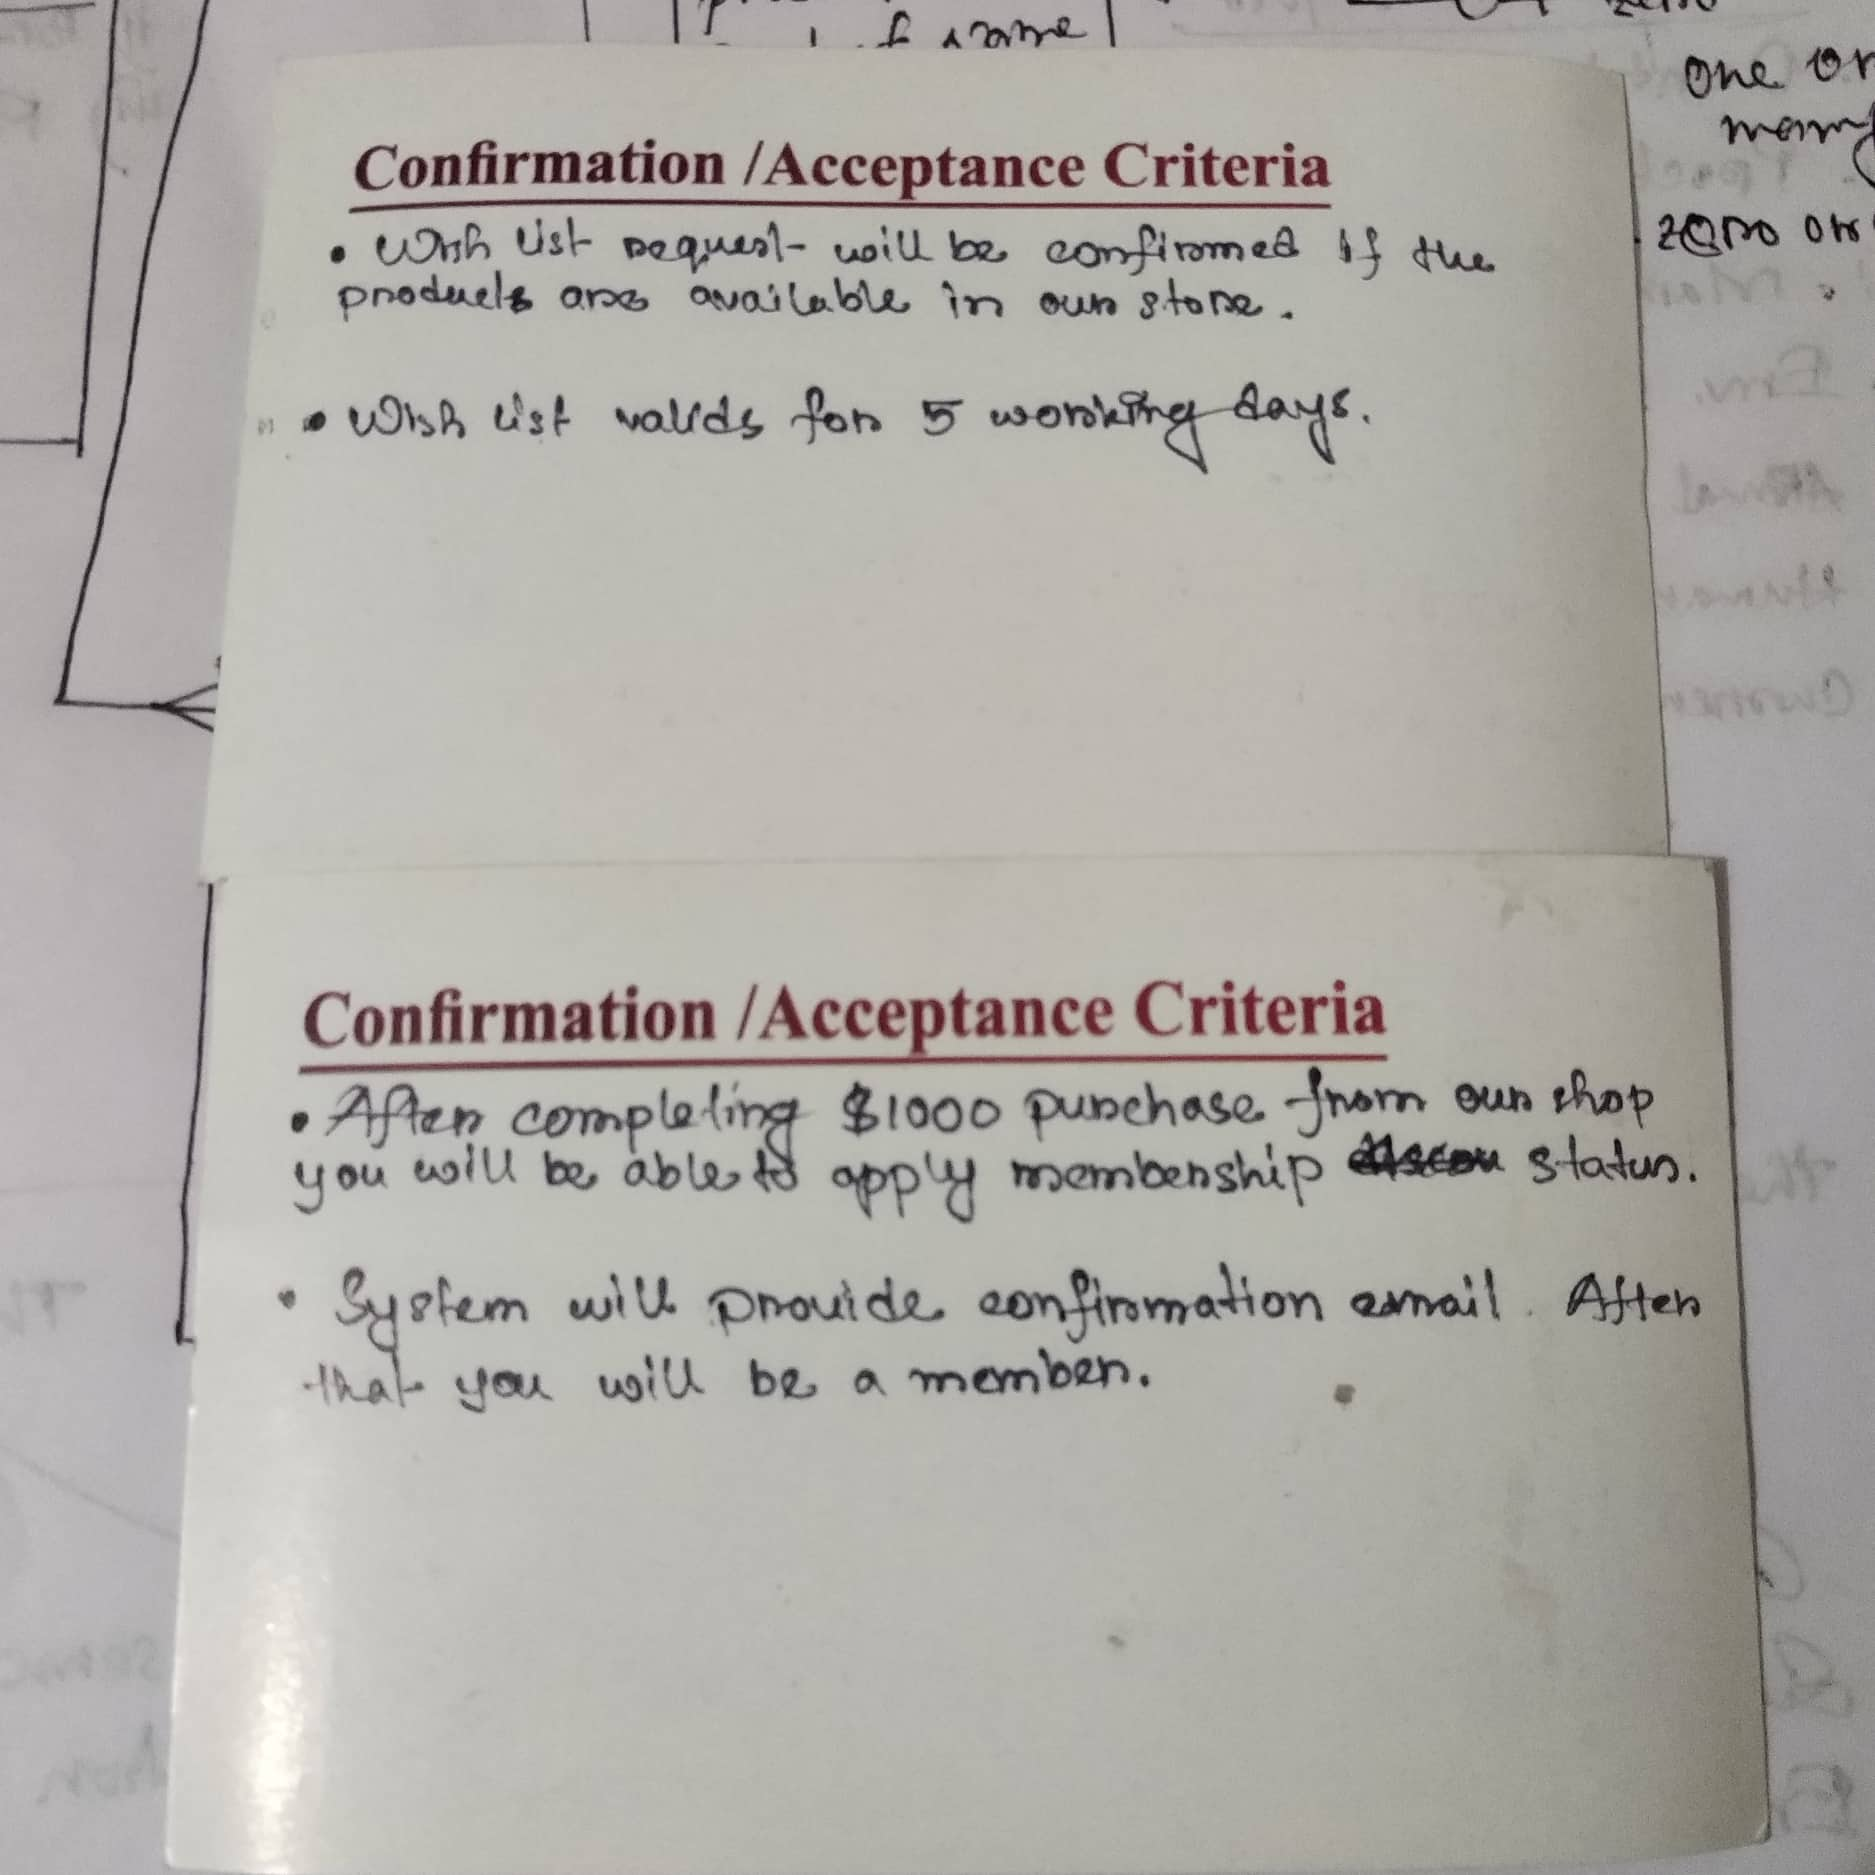 f name
zero
one or
many
zero or
Confirmation /Acceptance Criteria
• Wish list request will be confirmed if the
products are available in our store.
• Wish list valids for 5 working days.
Confirmation /Acceptance Criteria
• After completing $1000 purchase from our shop
you will be able to apply membership status.
• System will provide confirmation email. After
that you will be a member.